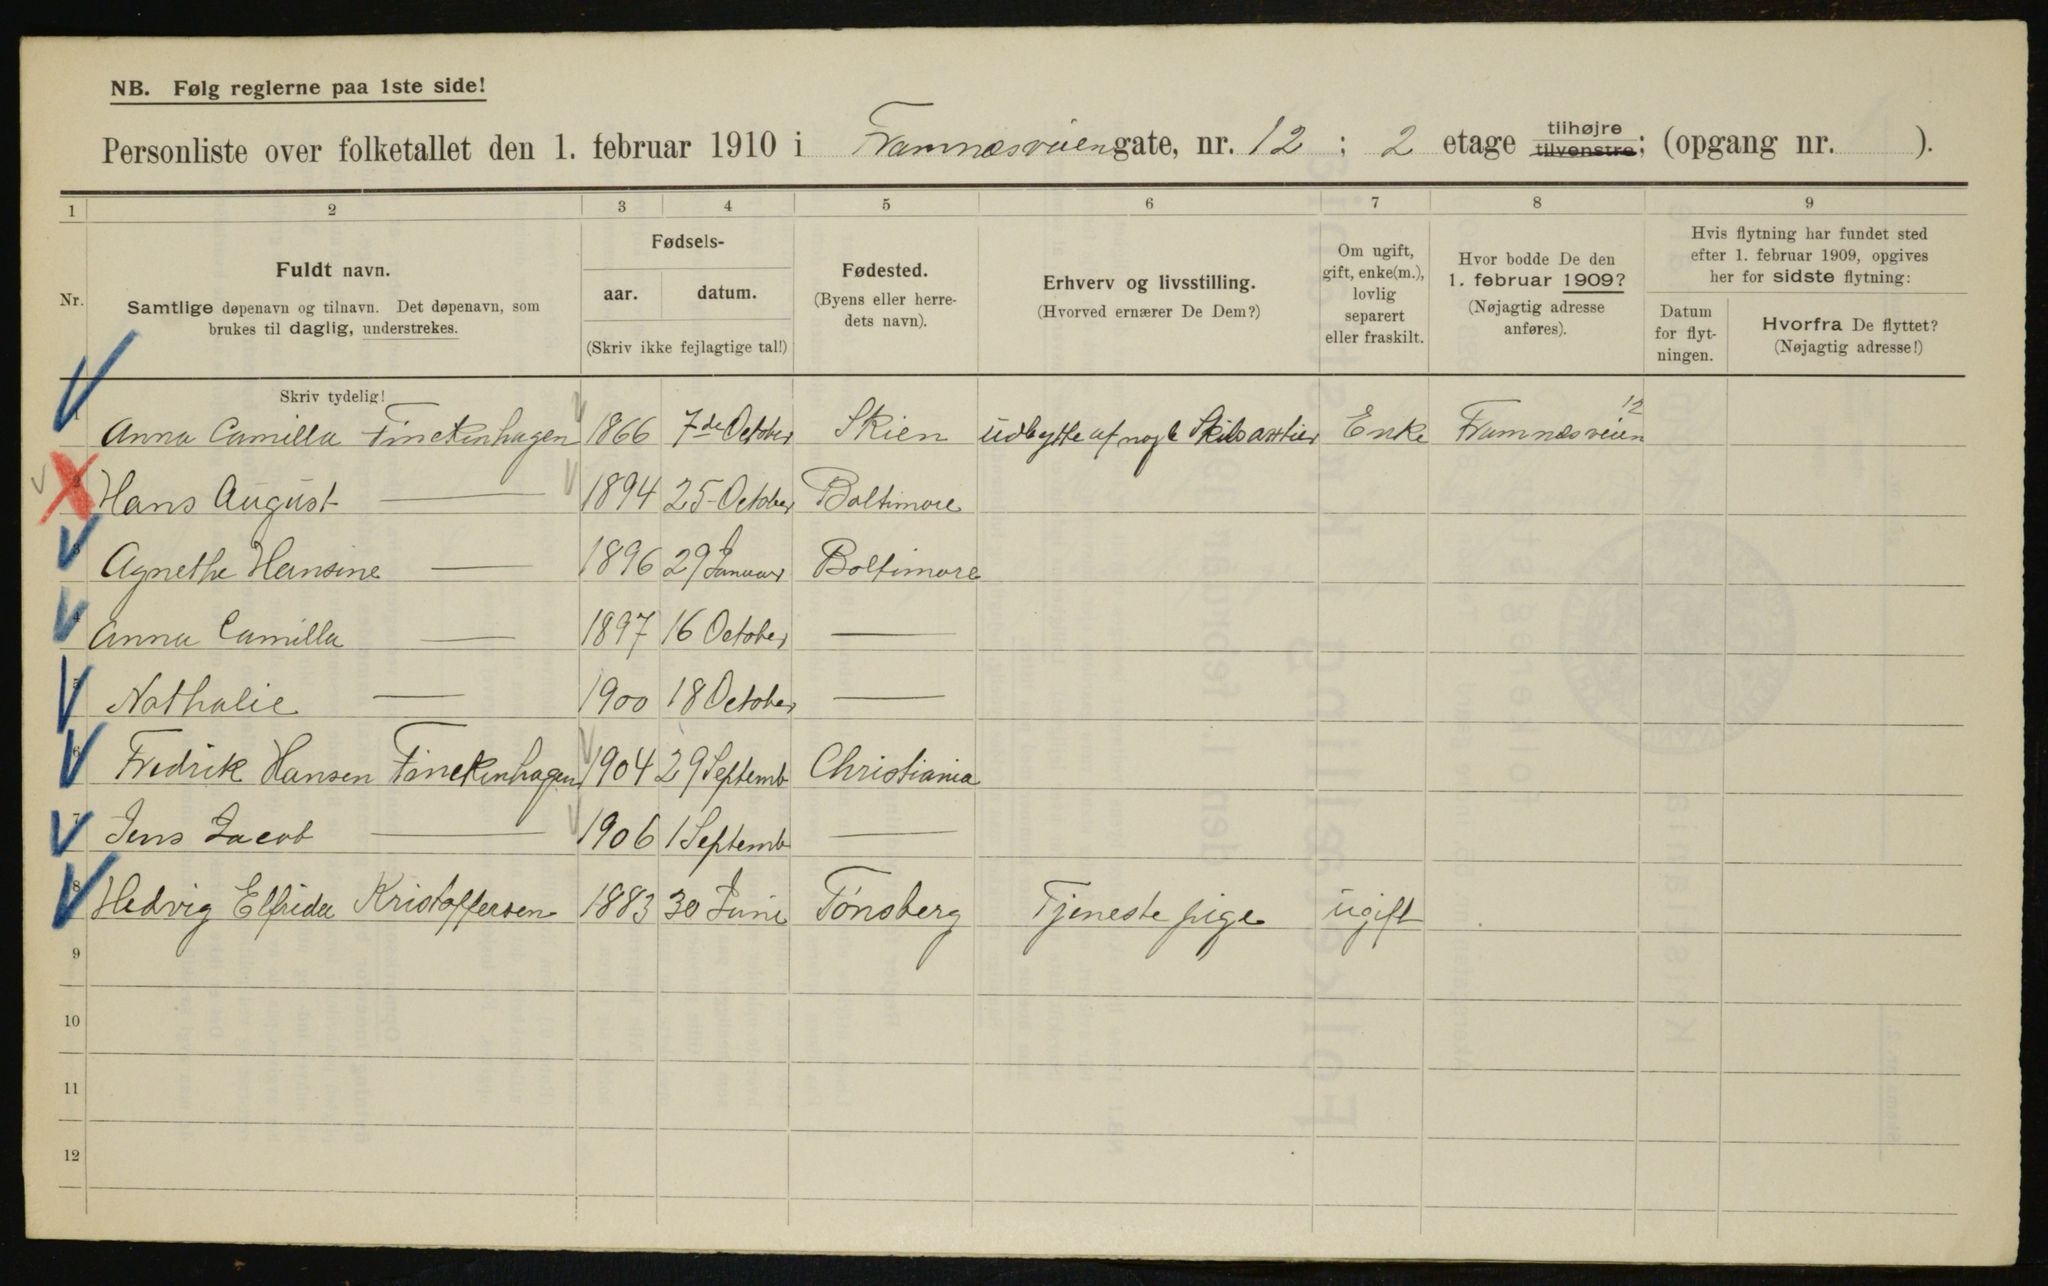 NB. Følg reglerne paa 1ste side!
Personliste over folketallet den 1. februar 1910 i Framnæsveien gate, nr. 12 ; 2 etage tilhøjre tilvenstre; (opgang nr. ).
1 2 3 4 5 6 7 8 9
Nr.
Fuldt navn.
Samtlige døpenavn og tilnavn. Det døpenavn, som
brukes til daglig, understrekes.
Skriv tydelig!
Fødsels-
aar. datum.
(Skriv ikke fejlagtige tal!)
Fødested.
(Byens eller herre-
dets navn).
Erhverv og livsstilling.
(Hvorved ernærer De Dem?)
Om ugift,
gift, enke(m.),
lovlig
separert
eller fraskilt.
Hvor bodde De den
1. februar 1909?
(Nøjagtig adresse
anføres).
Hvis flytning har fundet sted
efter 1. februar 1909, opgives
her for sidste flytning:
Datum
for flyt-
ningen.
Hvorfra De flyttet?
(Nøjagtig adresse!)
1 Anna Camilla Finckenhagen 1866 7de October Skien udbytte af nogle Skibsaktier Enke Framnæsveien 12
2 Hans August — 1894 25 October Baltimore
3 Agnethe Hansine — 1896 29 Januar Baltimore
4 Anna Camilla — 1897 16 October —
5 Nathalie — 1900 18 October —
6 Fredrik Hansen Finckenhagen 1904 29 Septemb Christiania
7 Jens Jacob — 1906 1 Septemb —
8 Hedvig Elfrida Kristoffersen 1883 30 Juni Tønsberg Tjenestepige ugift
9
10
11
12